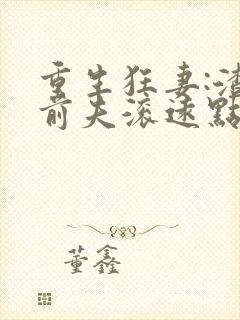 重生狂妻:渣
前夫滚远點
董鑫